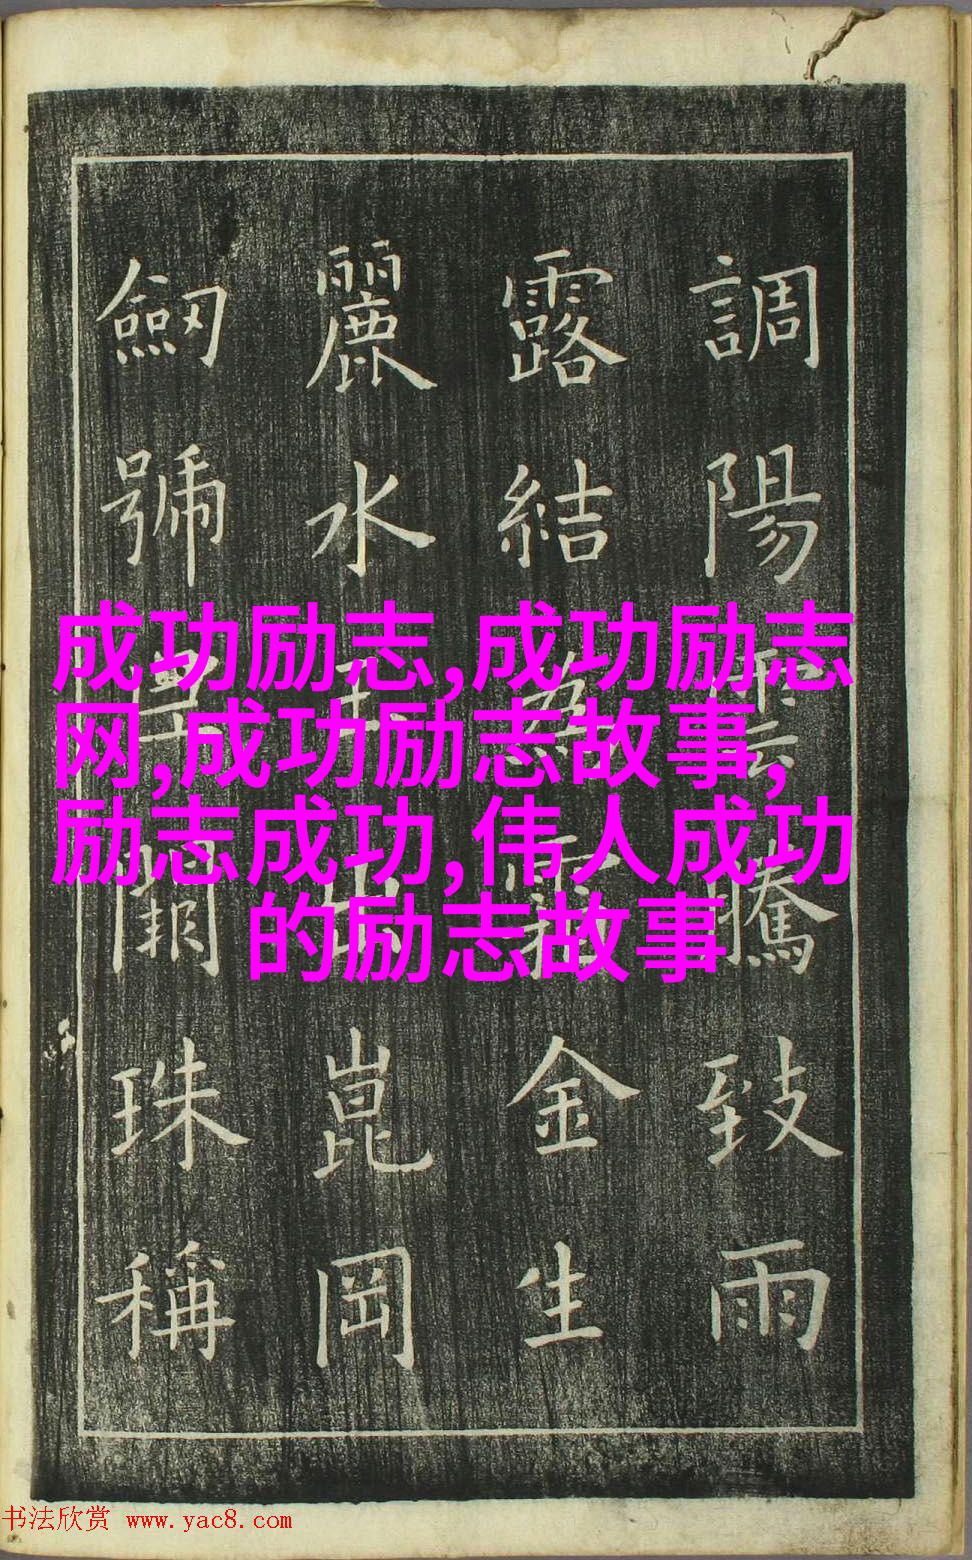 調陽雲騰致雨
露結為霜金生
麗水玉出崑岡
劒號巨闕珠稱
成功励志,成功励志
网,成功励志故事,
励志成功,伟人成功
的励志故事
书法欣赏 www.yac8.com